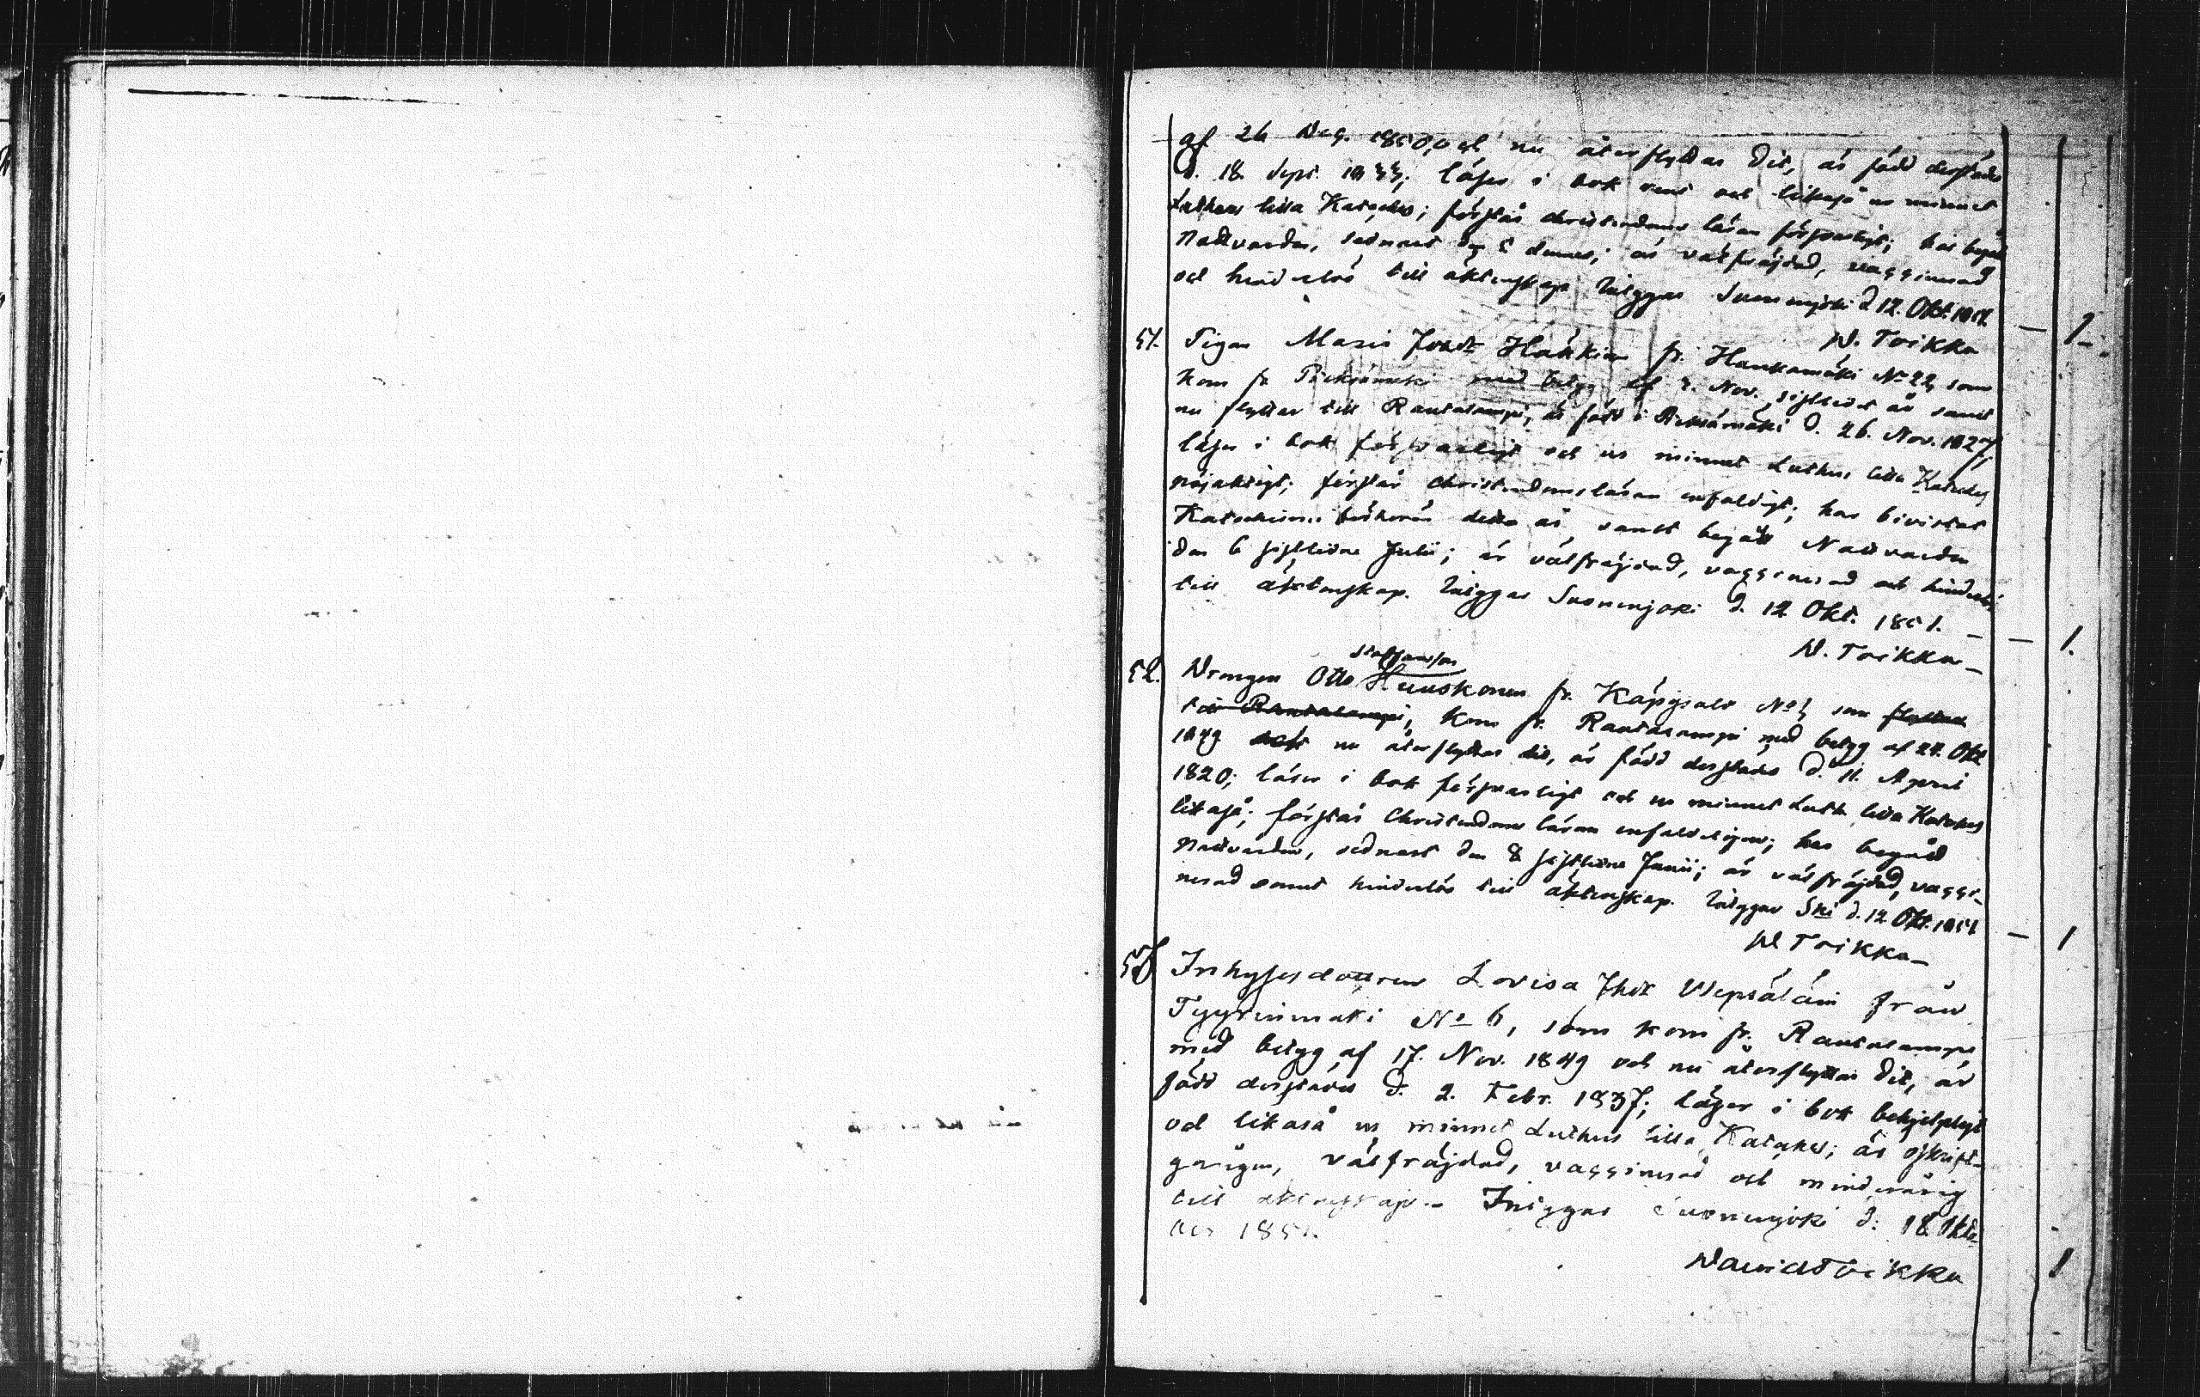 af 26 Dec. 1850, och nu återflyttar dit, är född derstädes
d. 18. Sept. 1833; läser i bok rent och likaså ur minnet
Luthers lilla Kateches; förstår christendoms läran försvarligt; har begått
Nattvarden, sednast den 5 dennes; är välfräjdad, vaccinerad
och hinderlös till äktenskap. Intyggar Suonenjoki d. 12. Okt. 1851.
D. Toikka — 1.
51. Pigan Maria Joh:dr Häkkin fr. Hankamäki No 22, som
kom fr. Pieksämäki med betyg af 2. Nov. sistledet år samt
nu flyttar till Rautalampi, är född i Pieksämäki d. 26. Nov. 1827;
läser i bok försvarligt och ur minnet Luthers lilla Kateches
nöjaktigt; förstår christendomsläran enfaldigt; har bivistat
Katechismi förhören detta år, samt begått Nattvarden
den 6 sistledne Julii; är välfräjdad, vaccinerad och hinderlös
till äktenskap. Intyggar Suonenjoki d. 12 Okt. 1851. — — 1.
D. Toikka —
Staffansson
52. Drengen Otto Huuskonen fr. Käpysalo No 1, som flyttar
till Rautalampi, kom fr. Rautalampi med betyg af 27. Okt
1849 och nu återflyttar dit, är född derstädes d. 11. April
1820; läser i bok försvarligt och ur minnet Luth. lilla Kateches
likaså; förstår Christendoms läran enfaldeligen; har begått
Nattvarden, sednast den 8 sistledne Junii; är välfräjdad, vacci-
nerad samt hinderlös till äktenskap. Intyggar Ski d. 12 Okt. 1851.
D Toikka — — 1
53 Inhysesdottren Lovisa Jhdr Vepsäläin från
Tyyrinmäki No 6, som kom fr. Rautalampi
med betyg af 17. Nov. 1849 och nu återflyttar dit, är
född derstädes d. 2. Febr. 1837; läser i bok behjelpligt
och likaså ur minnet Luthers lilla Kateches; är oskrift-
gången, välfräjdad, vaccinerad och minderårig
till äktenskap. — Intyggar Suonenjoki d. 18. Okto-
ber 1851.
David Toikka 1